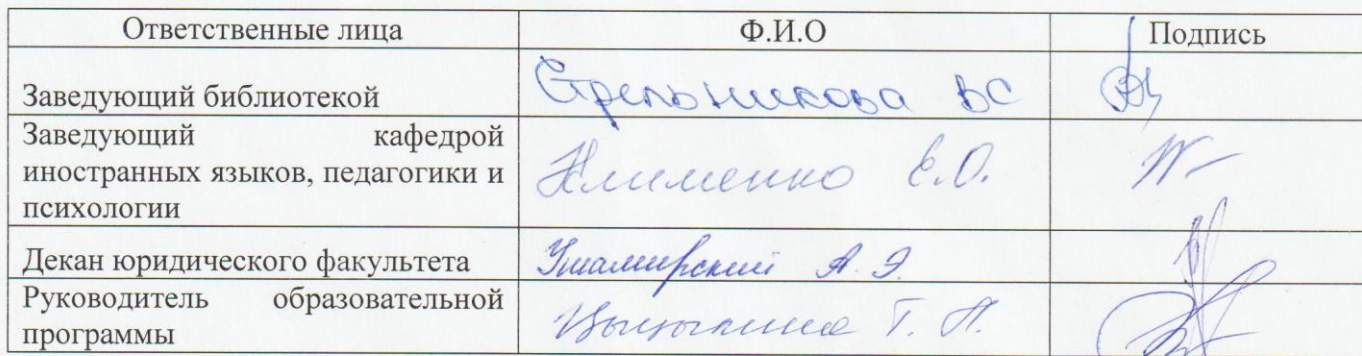 Ответственные лица Ф.И.О Подпись
Заведующий библиотекой Стрельникова ВС
Заведующий кафедрой
иностранных языков, педагогики и
психологии
Клименко Е.О.
Декан юридического факультета А. Э.
Руководитель образовательной
программы
Т. П.